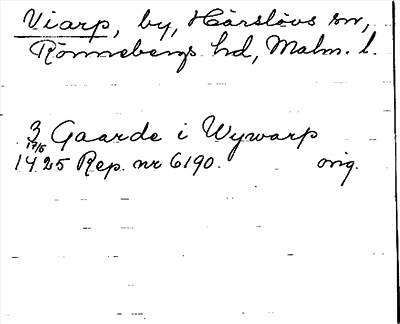 Viarp, by, Härslövs sn,
Rönnebergs hd, Malm. l.
3 Gaarde i Wywarp
17/5
1425 Rep. nr 6190. orig.